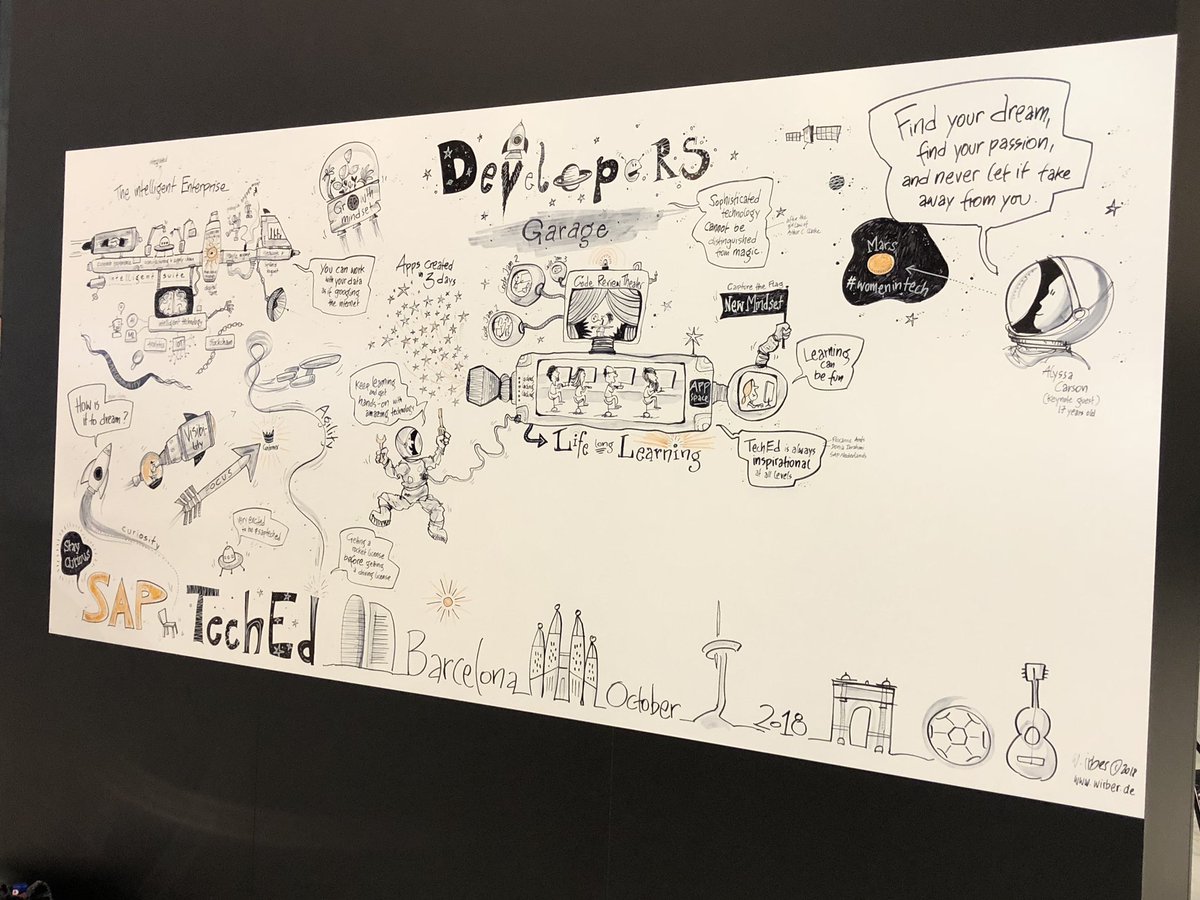 integrated
The intelligent Enterprise
intelligent suite
intelligent technology
Analytics
IoT
Blockchain
Growth
mindset
You can work
with your data
as if googling
the internet
How is
it to dream?
Visibi-
lity
FOCUS
Agility
curiosity
Stay
Curious
Developers
Garage
Apps created
in 3 days
Code Review Theater
Sophisticated
technology
cannot be
distinguished
from magic.
Capture the Flag
New Mindset
Learning
can
be fun
APP
space
Life long Learning
Keep learning
and get
hands-on with
amazing technology
TechEd is always
inspirational
at all levels
Getting a
rocket license
before getting
a driving license
Find your dream,
find your passion,
and never let it take
away from you.
Mars
#womenintech
Alyssa
Carson
(keynote guest)
17 years old
SAP TechEd Barcelona October 2018
©2018
www.wirber.de